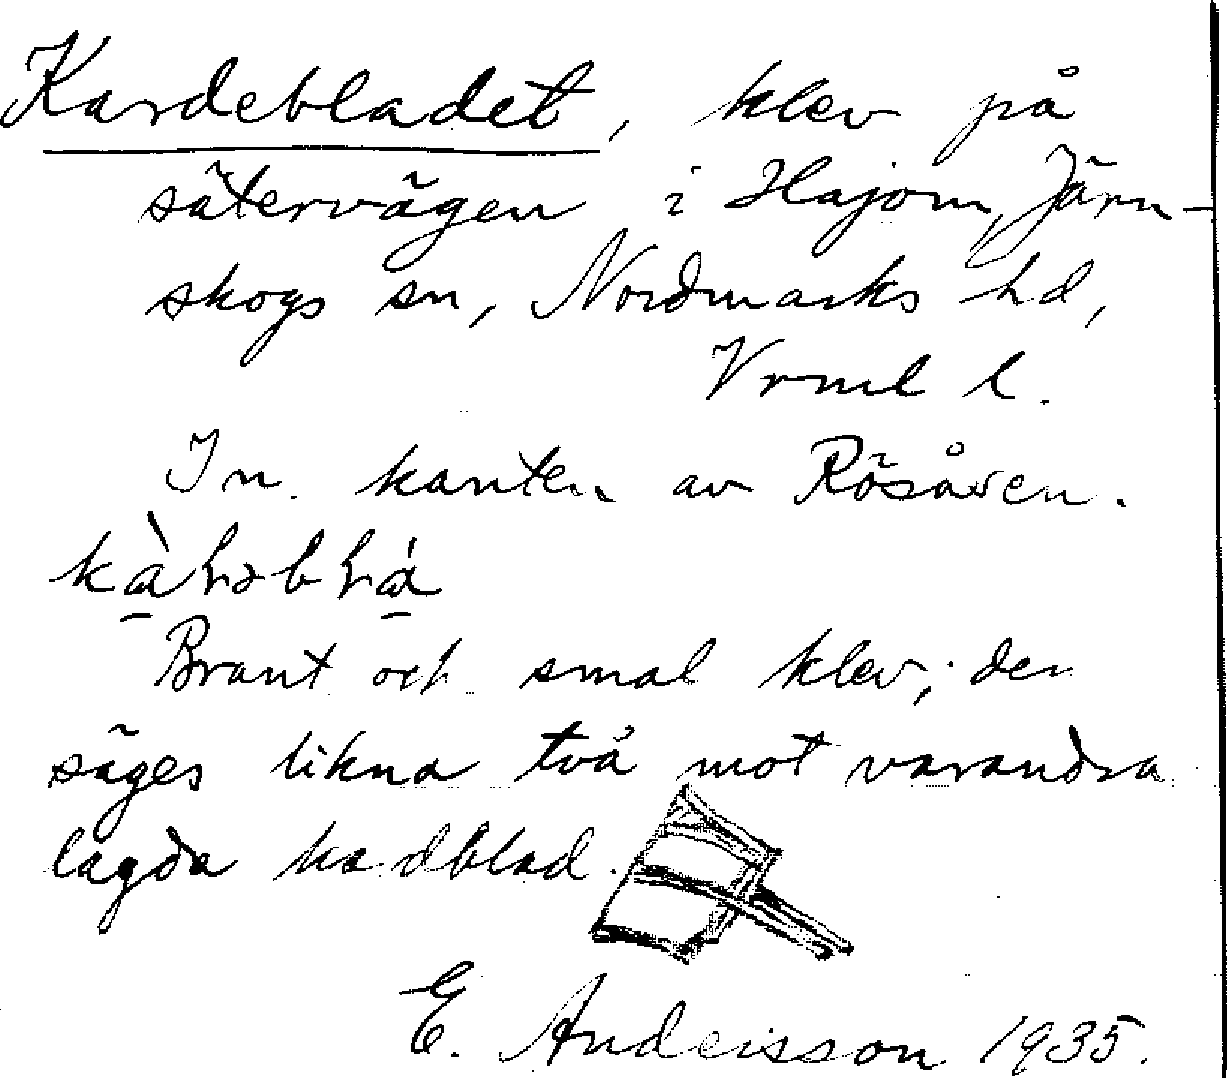 Kardebladet, klev på
sätervägen i Hajom, Järn-
skogs sn, Nordmarks hd,
Vrml l.
In. kanten av Rösåsen.
Brant och smal klev; den
säges likna två mot varandra
lagda kardblad.
E. Andersson 1935.